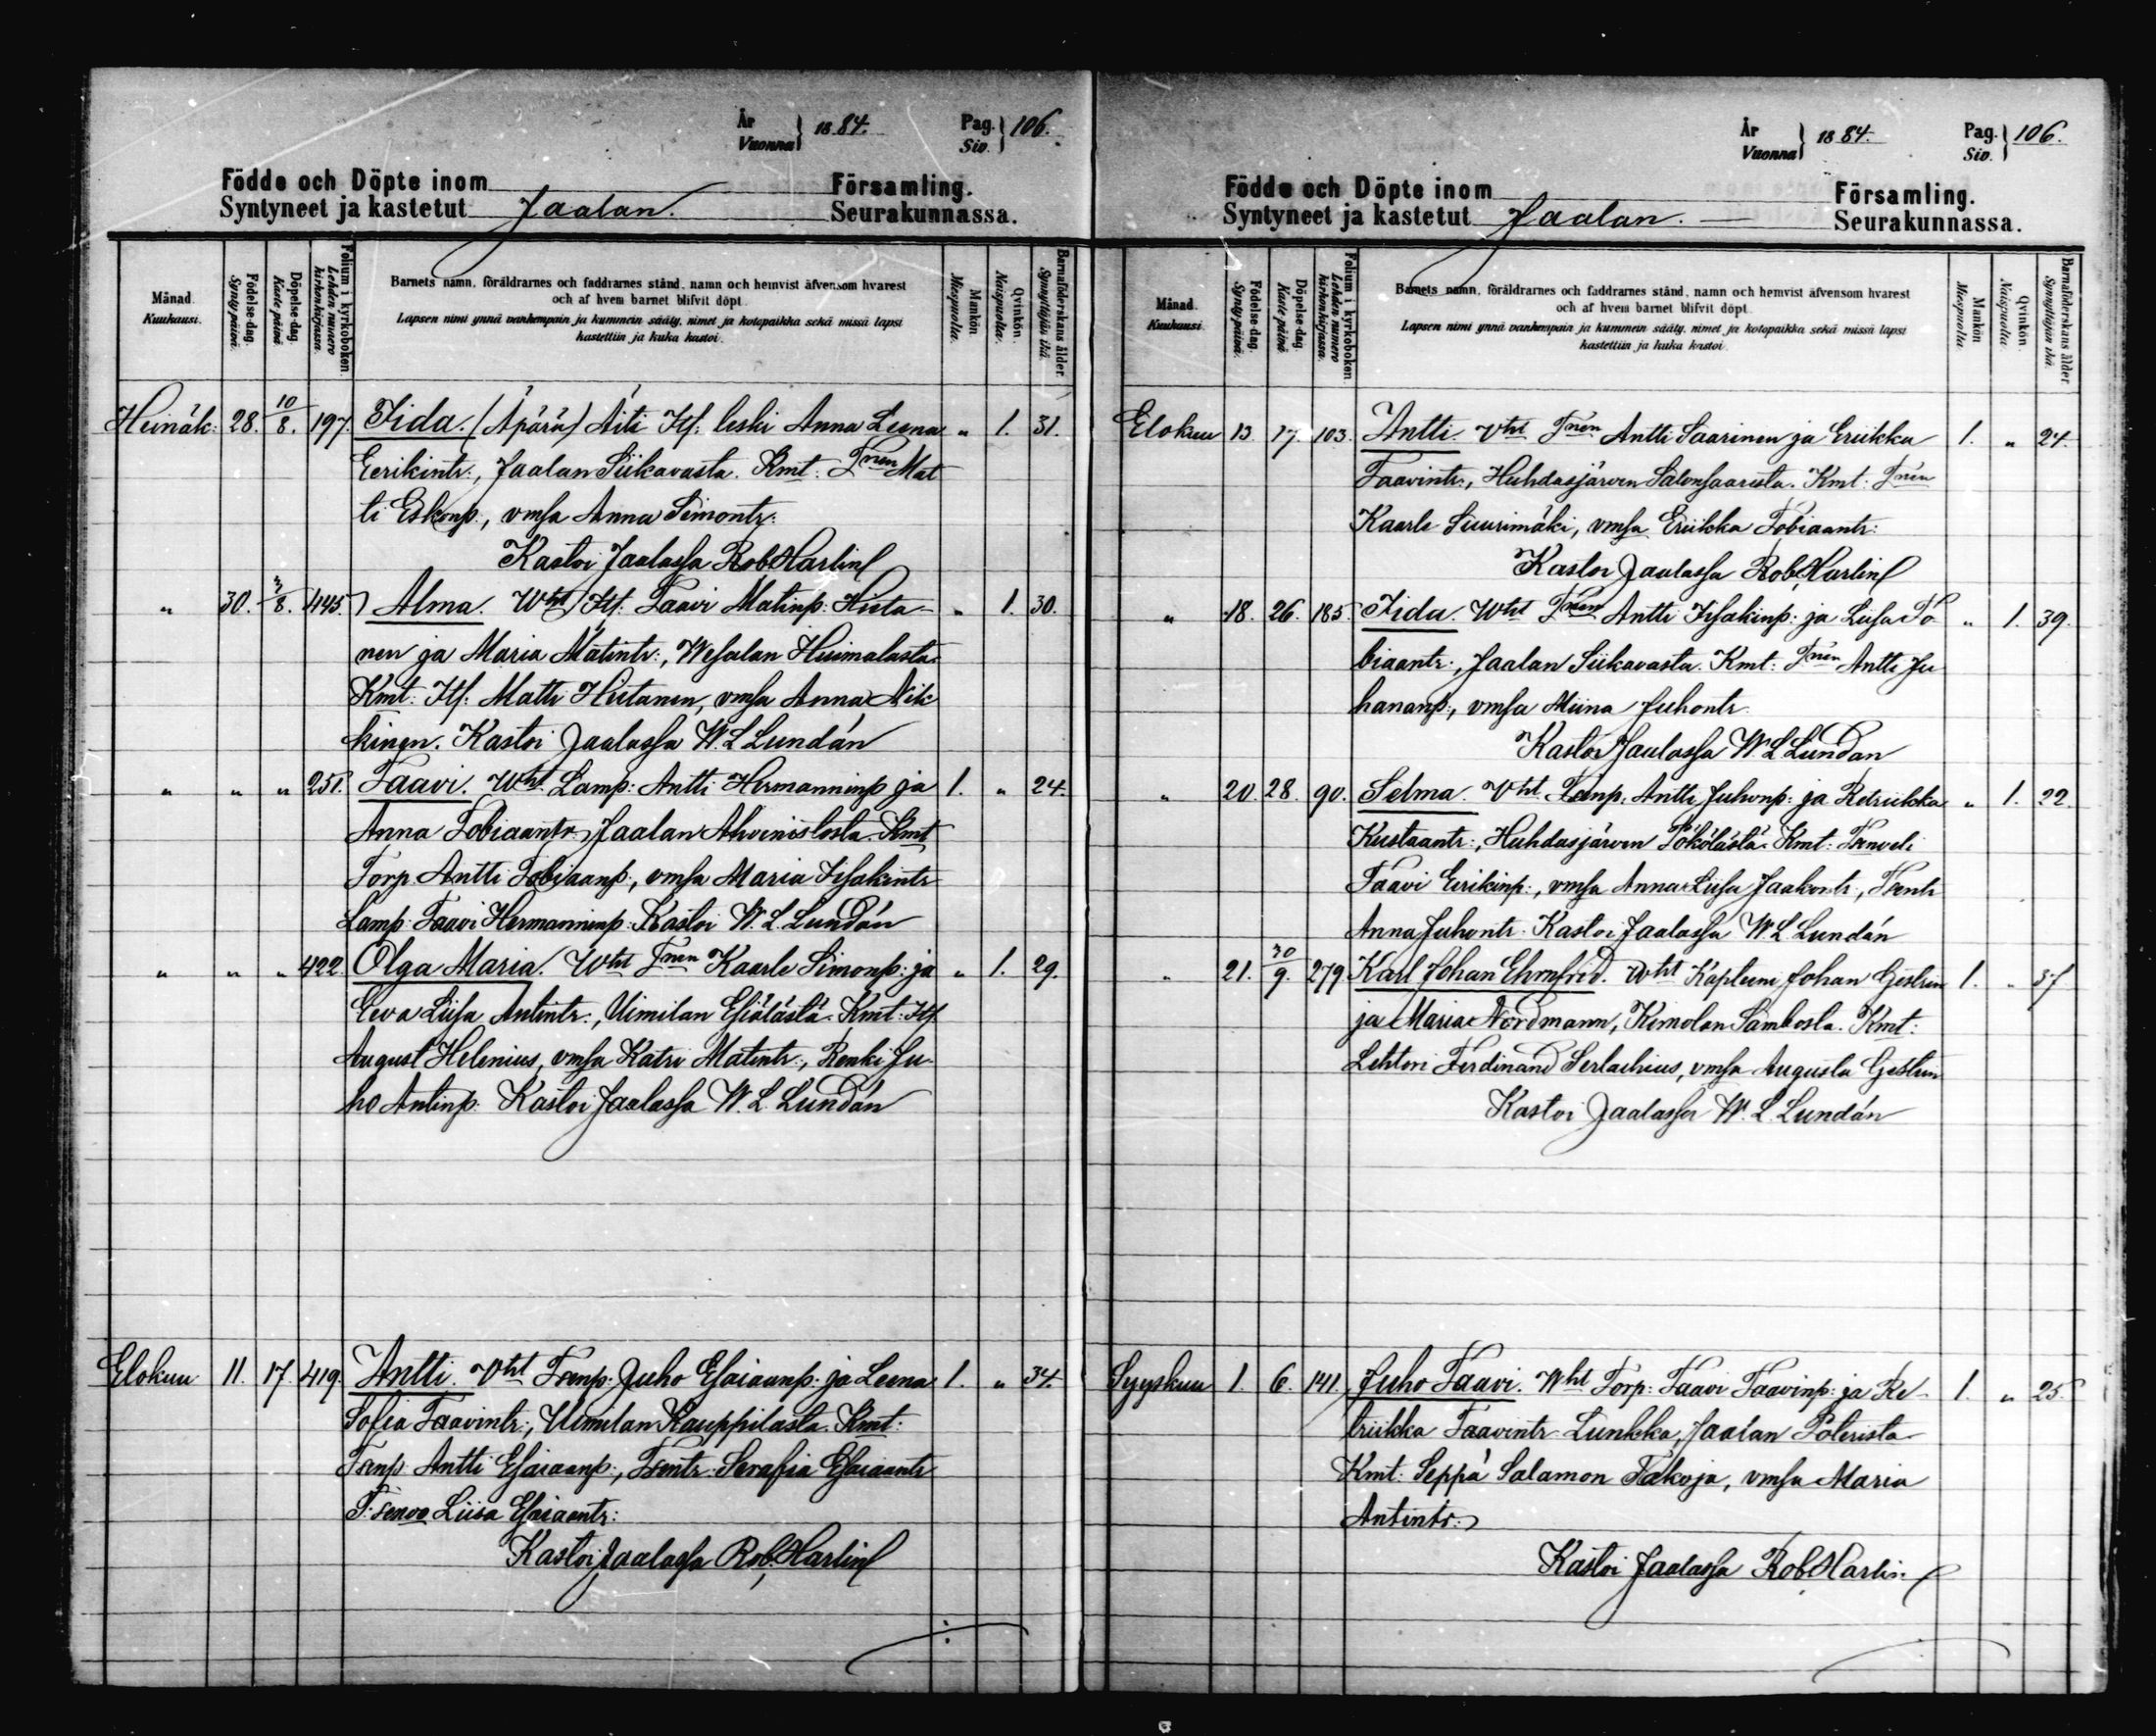 År Vuonna } 1884. Pag. Siv. } 106.
Födde och Döpte inom Församling.
Syntyneet ja kastetut Jaalan. Seurakunnassa.
Månad. Kuukausi.
Födelse-dag. Synty päivä.
Döpelse-dag. Kaste päivä.
Folium i kyrkoboken. Lehden numero kirkonkirjassa.
Barnets namn, föräldrarnes och faddrarnes stånd, namn och hemvist äfvensom hvarest
och af hvem barnet blifvit döpt.
Lapsen nimi ynnä vanhempain ja kummein sääty, nimet ja kotopaikka sekä missä lapsi
kastettiin ja kuka kastoi.
Mankön. Miespuolia.
Qvinkön. Naispuolia.
Barnaföderskans ålder. Synnyttäjän ikä.
Heinäk: 28. 10/8. 197. Iida. (Äpärä) Äiti Itf: leski Anna Leena „ 1. 31.
Eerikintr:, Jaalan Siikavasta. Kmt: Tnen Mat
ti Eskonp., vmsa Anna Simontr:
Kastoi Jaalassa Rob Harlin
„ 30. 3/8. 445. Alma. Wht Itf: Taavi Matinp: Huta- „ 1. 30.
nen ja Maria Matintr:, Wesalan Huimalasta.
Kmt: Itf: Matti Hutanen, vmsa Anna Nik
kinen. Kastoi Jaalassa W. L. Lundán
„ „ „ 251. Taavi. Wht. Lamp: Antti Hermanninp ja 1. „ 24.
Anna Tobiaantr. Jaalan Ahvenislosta. Kmt
Torp. Antti Tobiaanp:, vmsa Maria Iisakintr
Lamp: Taavi Hermanninp: Kastoi W. L. Lundán
„ „ „ 422. Olga Maria. Wht Tnen Kaarle Simonp: ja „ 1. 29.
Eeva Liisa Antintr., Uimilan Esiölästä. Kmt: Itf.
August Helenius, vmsa Katri Matintr:, Renki Ju-
ho Antinp: Kastoi Jaalassa W. L. Lundán
Elokuu 11. 17. 419. Antti. Vht Tsenp: Juho Esaiaanp: ja Leena 1. „ 34.
Sofia Taavintr:, Uimilan Kauppilasta. Kmt:
Tsenp: Antti Esaiaanp:, Tsentr: Serafia Esaiaantr
T: senvo Liisa Esaiaantr:
Kastoi Jaalassa Rob. Harlin
År Vuonna } 1884. Pag. Siv. } 106.
Födde och Döpte inom Församling.
Syntyneet ja kastetut Jaalan. Seurakunnassa.
Månad. Kuukausi.
Födelse-dag. Synty päivä.
Döpelse-dag. Kaste päivä.
Folium i kyrkoboken. Lehden numero kirkonkirjassa.
Barnets namn, föräldrarnes och faddrarnes stånd, namn och hemvist äfvensom hvarest
och af hvem barnet blifvit döpt.
Lapsen nimi ynnä vanhempain ja kummein sääty, nimet ja kotopaikka sekä missä lapsi
kastettiin ja kuka kastoi.
Mankön. Miespuolia.
Qvinkön. Naispuolia.
Barnaföderskans ålder. Synnyttäjän ikä.
Elokuu 13. 17. 103. Antti. Vht Tnen Antti Saarinen ja Eriikka 1. „ 24.
Taavintr:, Huhdasjärven Salonsaaresta. Kmt: Tnen
Kaarle Suurimäki, vmsa Eriikka Tobiaantr:
Kastoi Jaalassa Rob. Harlin
„ 18. 26. 185. Iida. Wht Tnen Antti Iisakinp: ja Liisa To „ 1. 39.
biaantr:, Jaalan Siikavasta. Kmt: Tnen Antti Ju
hananp:, vmsa Miina Juhontr.
Kastoi Jaalassa W. L. Lundán
„ 20. 28. 90. Selma. Vht. Tsenp. Antti Juhonp: ja Retriikka „ 1. 22.
Kustaantr:, Huhdasjärven Pökölästä. Kmt: Tsenveli
Taavi Eerikinp:, vmsa Anna Liisa Jaakontr., Tsentr
Anna Juhontr. Kastoi Jaalassa W. L. Lundán
„ 21. 30/9. 279. Karl Johan Ehrnfrid. Wht Kapleeni Johan Gestrin 1. „ 37
ja Maria Nordmann, Kimolan Sambosta. Kmt:
Lehtori Ferdinand Serlachius, vmsa Augusta Gestrin
Kastoi Jaalassa W. L. Lundán
Syyskuu 1. 6. 141. Juho Taavi. Wht Torp: Taavi Taavinp: ja Re- 1. „ 25.
triikka Taavintr. Lunkka, Jaalan Polerista
Kmt: Seppä Salamon Takoja, vmsa Maria
Antintr:
Kastoi Jaalassa Rob Harlin